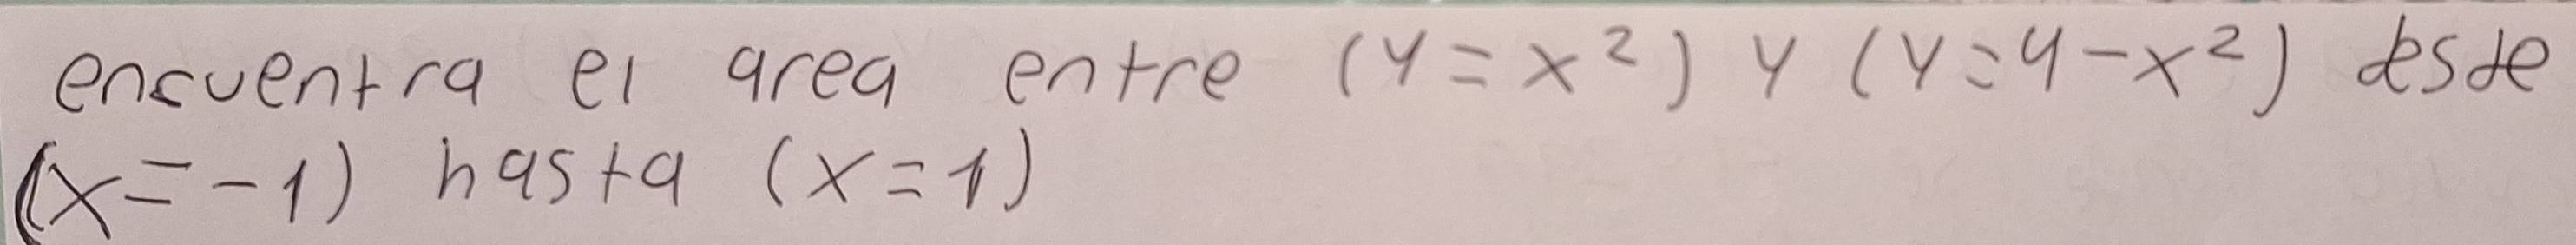 encuentra el area entre (y=x²) y (y=4-x²) desde
(x=-1) hasta (x=1)